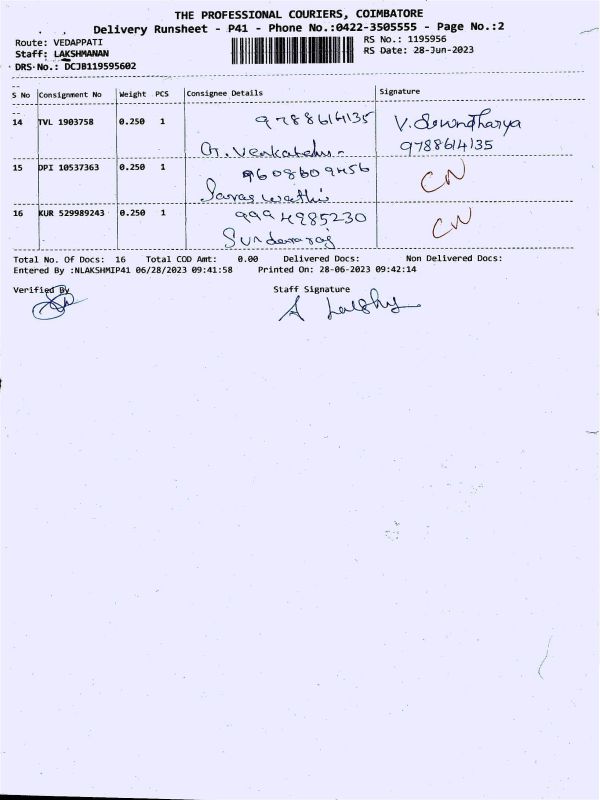 THE PROFESSIONAL COURIERS, COIMBATORE
Delivery Runsheet - P41 - Phone No.:0422-3505555 - Page No.:2
Route: VEDAPPATI
RS No.: 1195956
Staff: LAKSHMANAN
RS Date: 28-Jun-2023
DRS.No.: DCJB119595602
S No Consignment No Weight PCS Consignee Details Signature
14 TVL 1903758 0.250 1 9788614135 V. Sowndharya
G. Venkatesh 9788614135
15 DPI 10537363 0.250 1 9608609456 CN
Saraswathi
16 KUR 529989243 0.250 1 9994985230 CN
Sundararaj
Total No. Of Docs: 16 Total COD Amt: 0.00 Delivered Docs: Non Delivered Docs:
Entered By :NLAKSHMIP41 06/28/2023 09:41:58 Printed On: 28-06-2023 09:42:14
Verified By
Staff Signature